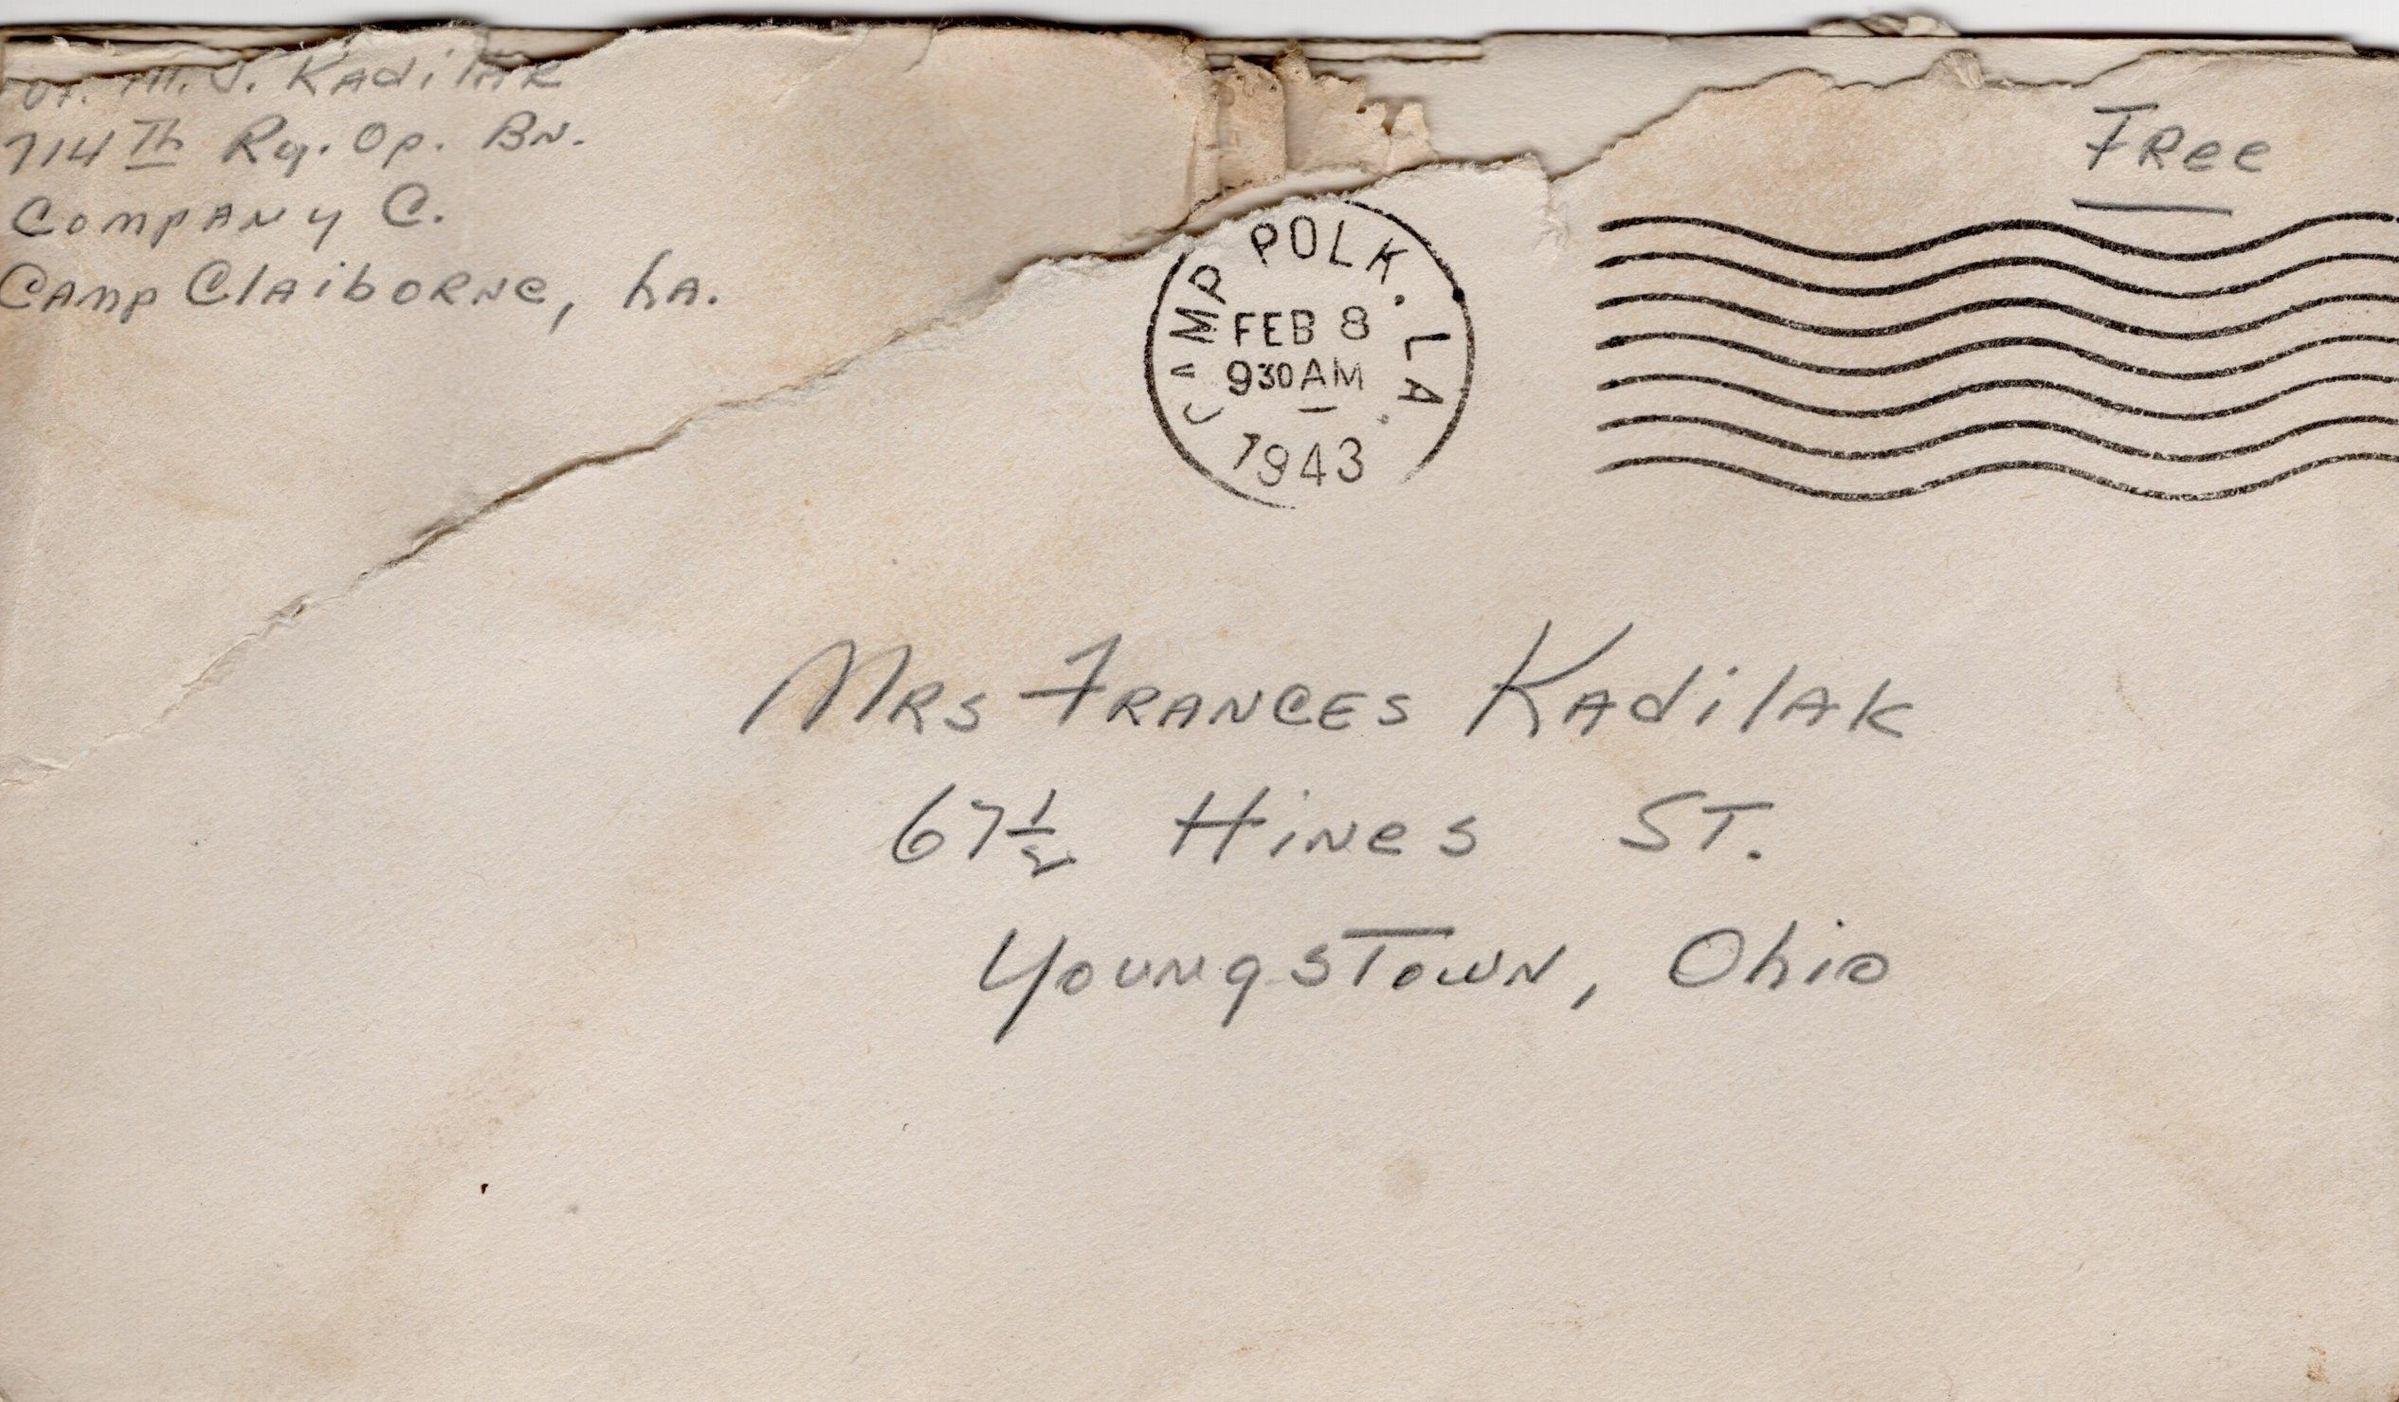 M. J. Kadilak
714th Ry. Op. Bn.
Company C.
Camp Claiborne, La.
Free
CAMP POLK. LA.
FEB 8
930 AM
1943
Mrs Frances Kadilak
67½ Hines St.
Youngstown, Ohio